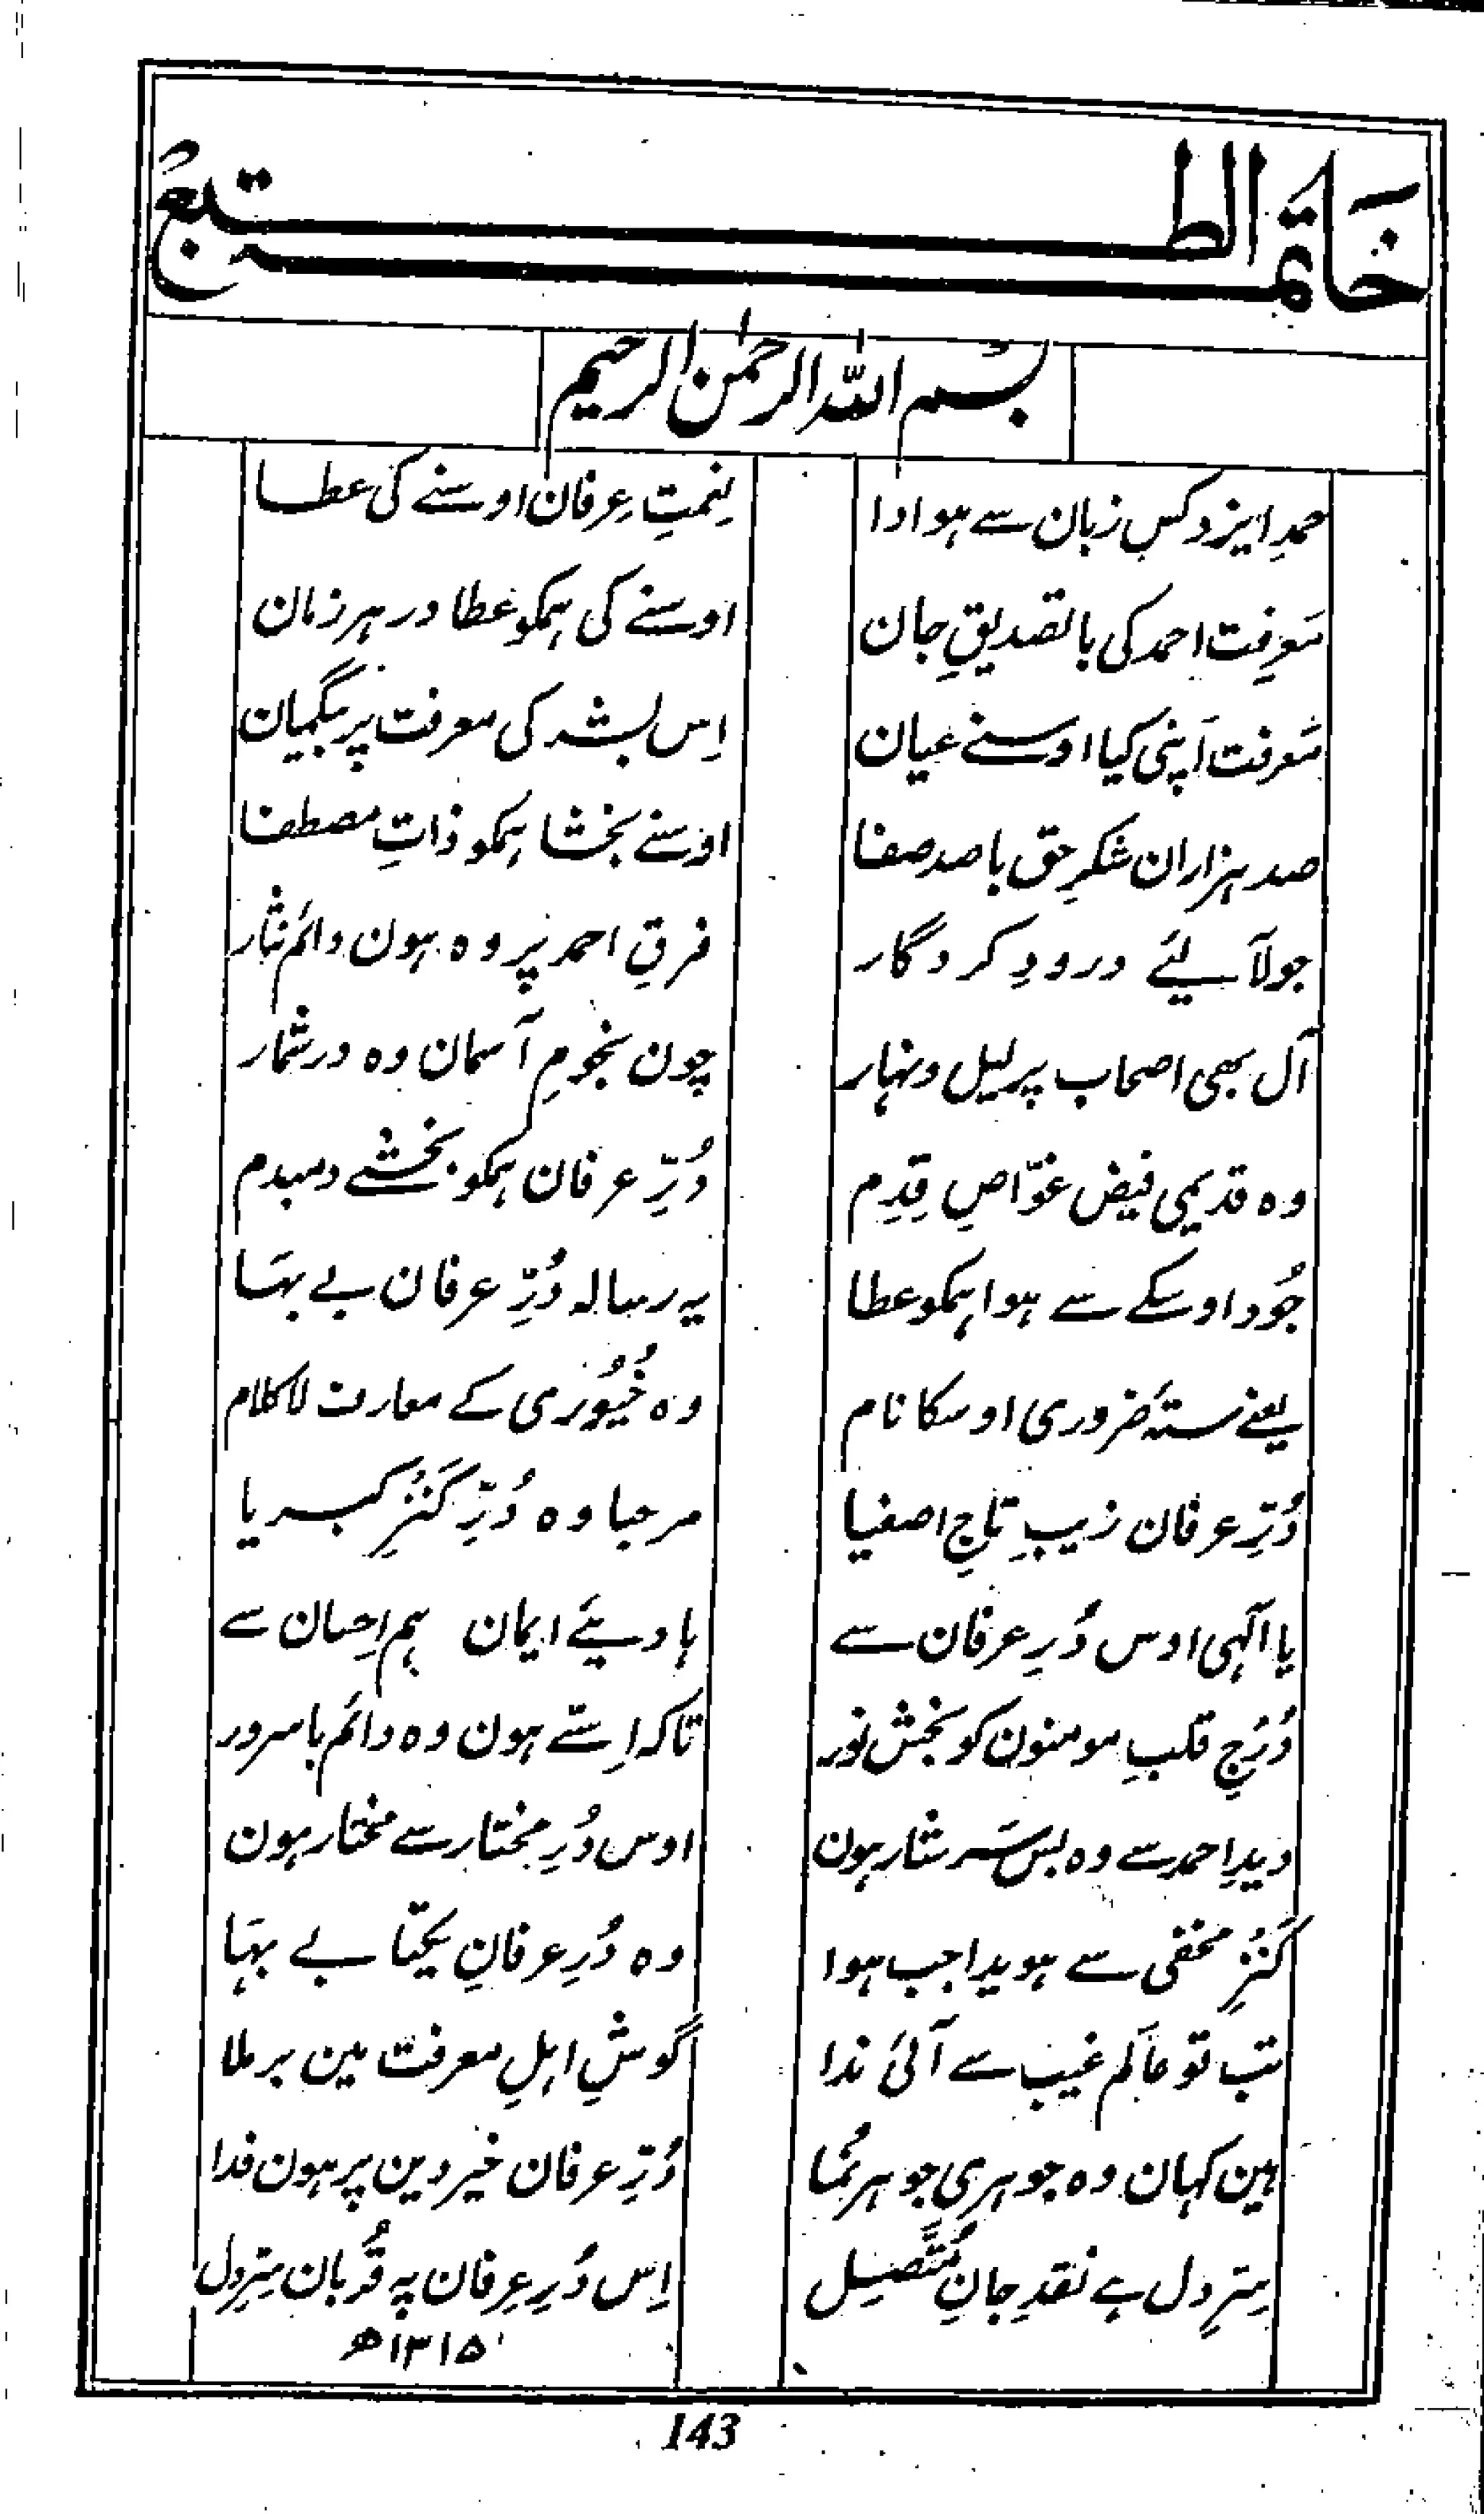 خاتمۃ الطبع
بسم اللہ الرحمٰن الرحیم
حمدِ ایزد کس زبان سے ہو ادا نعمتِ عرفان اوسنے کی عطا
معرفت احمد کی بالتصدیقِ جان اوسنے کی ہمکو عطا در ہر زمان
معرفت اپنی کیا اوسنے عیان اِس بشر کی معرفت پر بیگمان
صد ہزاران شکرِ حق با صد صفا اوسنے بخشا ہمکو ذاتِ مصطفا
جو لآلیئے درودِ کردگار فرقِ احمد پر وہ ہون دائم نثار
آل بھی اصحاب پر لیل ونہار چون نجومِ آسمان وہ در شمار
وہ قدیمی فیض غوّاصِ قِدم دُرِّ عرفان ہمکو بخشے دمبدم
جُود اوسکے سے ہوا ہمکو عطا یہ رسالہ دُرِّ عرفان بے بہا
یعنے ستہ ضروری اوسکا نام وہ خُیُوری کے معارف لاکلام
دُرِّ عرفان زیبِ تاجِ اصفیا مرحبا وہ دُرِّ کَنْزِ کبریا
یا الٰہی اوس دُرِ عرفان سے ہادیئے ایمان ہم اِحسان سے
دُرْجِ قلبِ مومنون کو بخش نور تاکہ اِستے ہون وہ دائم با سرور
دیدِ احمد سے وہ بس سَرشار ہون اوس دُرِ مختار سے مختار ہون
کَنْزِ مخفی سے ہویدا جب ہوا وہ دُرِ عرفانِ یکتا بے بہا
تب تو عالَم غیب سے آئی ندا گوشِ اہلِ معرفت مین برملا
ہین کہان وہ جوہری جوہر نُما دُرِّ عرفان خیر دین پر ہون فدا
سِرِّ دل ہے نقدِ جانِ مُتَّصِل اِس دُرِ عرفان پہ قُربان سِرِّ دل
۱۳۱۵ھ
143